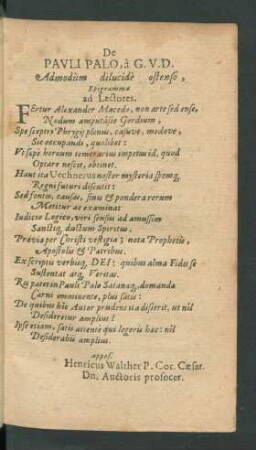 De
PAVLI PALO, à G. V. D.
Admodum dilucidè ostenso,
Epigramma
ad Lectores.
FErtur Alexander Macedo, non arte sed ense,
Nodum amputâsse Gordium,
Spe sceptri Phrygij plenus, casuve, modove,
Sic occupandi, quolibet:
Vt sæpè heroum temerarius impetus id, quod
Optare nescit, obtinet.
Haut ita Vechnerus noster mysteria spemq;
Regni futuri discutit:
Sed fontis, causas, finis & pondera rerum
Metitur ac examinat
Iudicio Logico, veri sensus ad amussim
Sanctiq; ductum Spiritus,
Prævia per Christi vestigia; nota Prophetis,
Apostolis & Patribus.
Ex scriptis verbisq; DEI: quibus alma Fides se
Sustentat atq; Veritas.
Res patet in Pauli Palo Satanaq; domanda
Carni imminente, plus satis:
De quibus hîc Autor prudens ita disserit, ut nil
Desideretur amplius:
Ipse etiam, satis attentè qui legeris hæc: nil
Desiderabis amplius.
appos.
Henricus Walther P. Cor. Cæsar.
Dn. Auctoris prosocer.